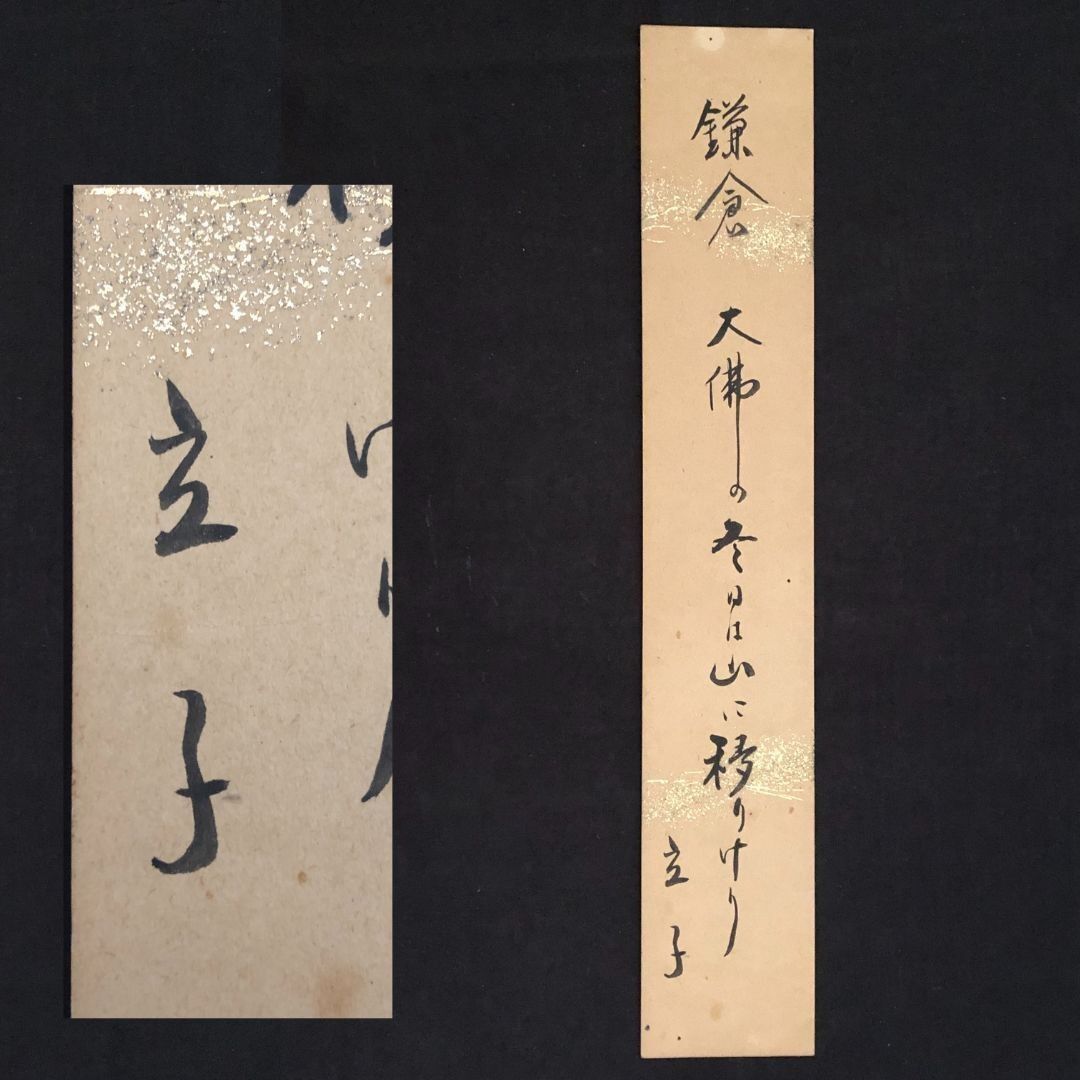 鎌倉 大佛の冬日は山に移りけり
立子
立子